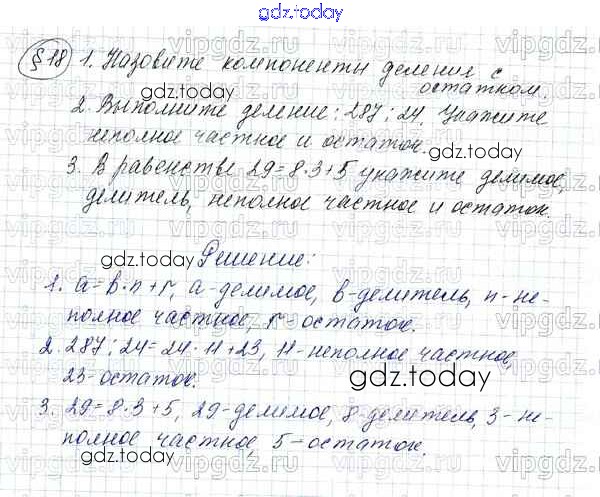 gdz.today
§18 1. Назовите компоненты деления с
остатком.
gdz.today
2. Выполните деление: 287 : 24. Укажите
неполное частное и остаток.
gdz.today
3. В равенстве 29 = 8·3+5 укажите делимое,
делитель, неполное частное и остаток.
gdz.today
Решение:
1. a = b·n + r, a - делимое, b - делитель, n - не-
полное частное, r - остаток.
2. 287 : 24 = 24 · 11 + 23, 11 - неполное частное,
23 - остаток.
gdz.today
3. 29 = 8·3+5, 29 - делимое, 8 - делитель, 3 - не-
полное частное 5 - остаток.
gdz.today